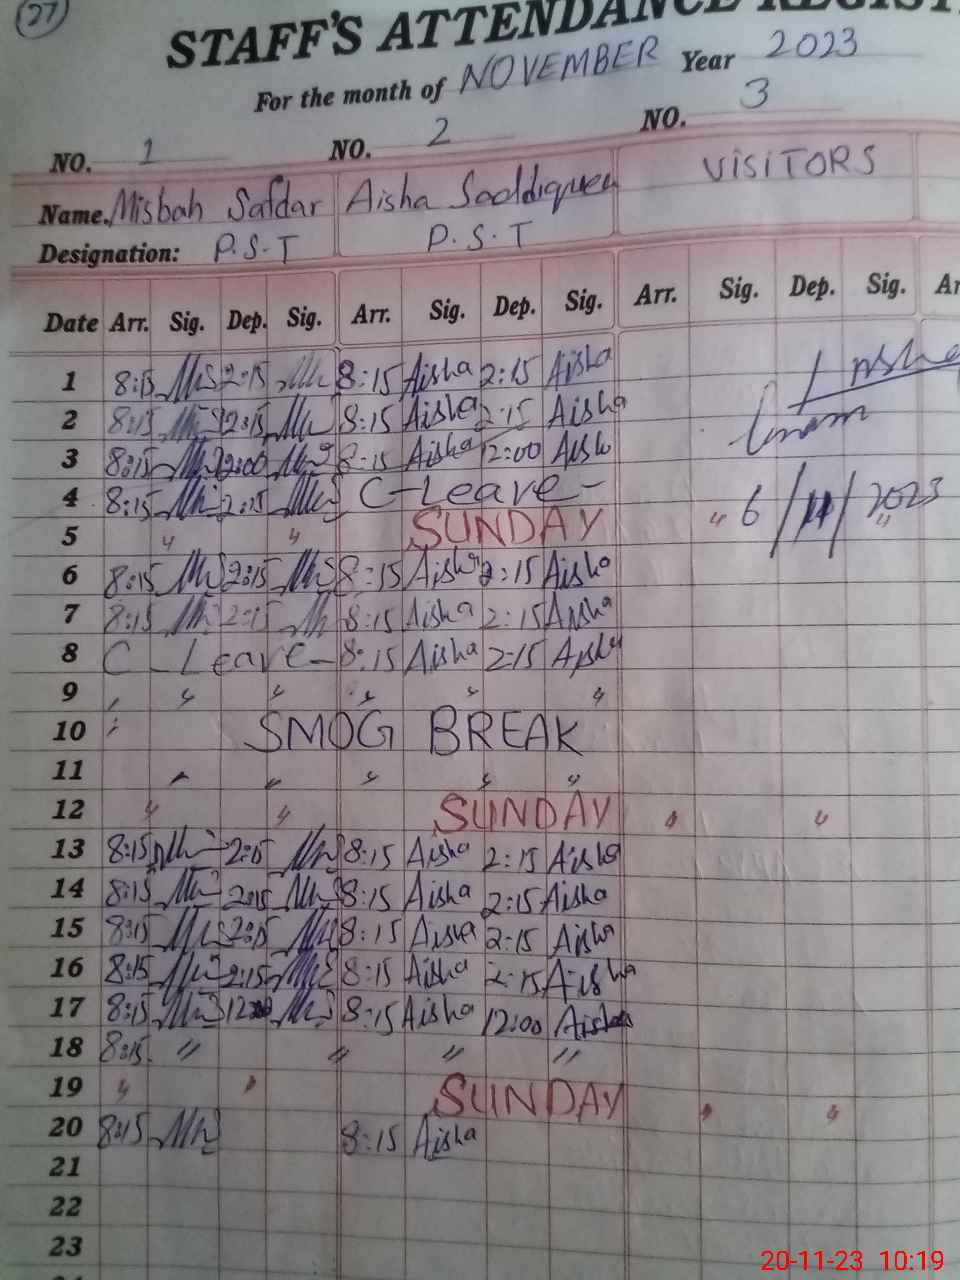 27
STAFF'S ATTENDANCE REGIST
For the month of NOVEMBER Year 2023
NO. 1 NO. 2 NO. 3
Name. Misbah Safdar Aisha Saddiquen VISITORS
Designation: P.S.T P.S.T
Date Arr. Sig. Dep. Sig. Arr. Sig. Dep. Sig. Arr. Sig. Dep. Sig. Ar
1 8:15 2:15 8:15 Aisha 2:15 Aisha
2 8:15 2:15 8:15 Aisha 2:15 Aisha
3 8:15 12:00 8:15 Aisha 12:00 Aisha
4 8:15 2:15 C-Leave-
5 " " SUNDAY " 6/11/2023 "
6 8:15 2:15 8:15 Aisha 2:15 Aisha
7 8:15 2:15 8:15 Aisha 2:15 Aisha
8 C-Leave- 8:15 Aisha 2:15 Aisha
9 " " " " " "
10 " SMOG BREAK
11 " " " " "
12 " " SUNDAY " "
13 8:15 2:15 8:15 Aisha 2:15 Aisha
14 8:15 2:15 8:15 Aisha 2:15 Aisha
15 8:15 2:15 8:15 Aisha 2:15 Aisha
16 8:15 2:15 8:15 Aisha 2:15 Aisha
17 8:15 12:00 8:15 Aisha 12:00 Aisha
18 8:15 " " " "
19 " " SUNDAY " "
20 8:15 8:15 Aisha
21
22
23
20-11-23 10:19